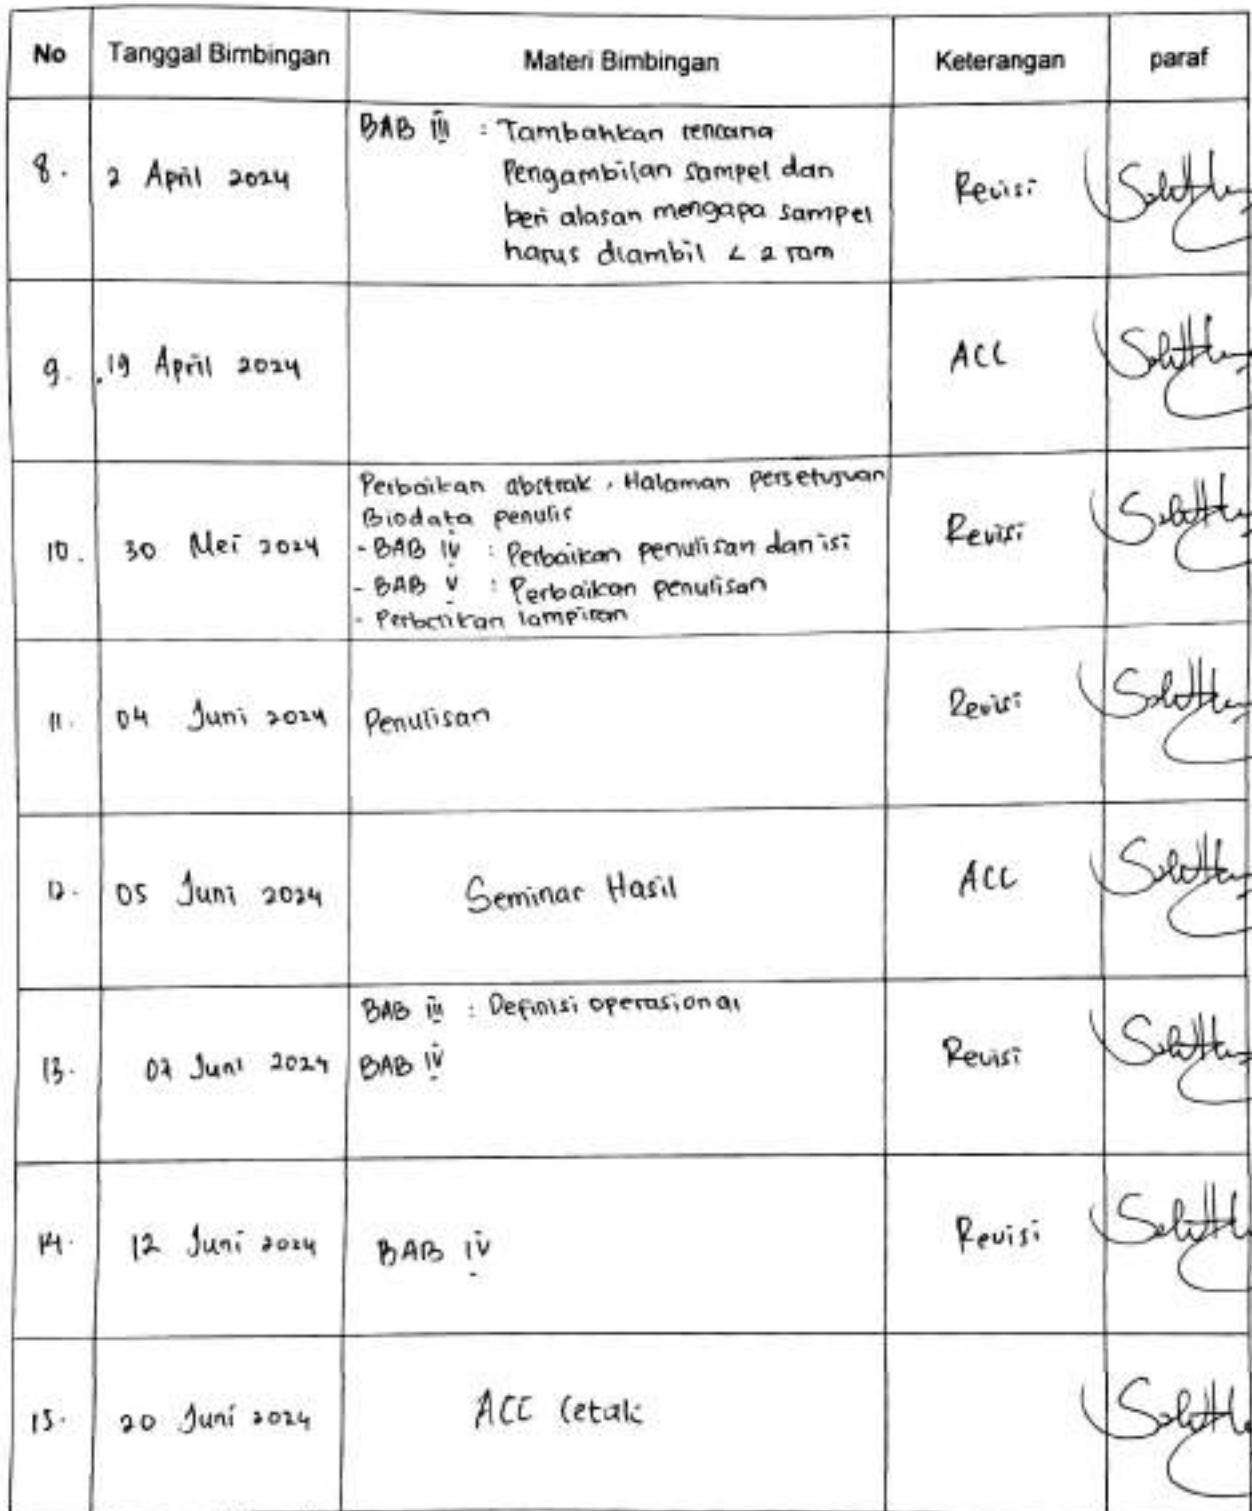 No Tanggal Bimbingan Materi Bimbingan Keterangan paraf
8. 2 April 2024 BAB III : Tambahkan rencana Revisi
Pengambilan sampel dan
beri alasan mengapa sampel
harus diambil < 2 Jam
9. 19 April 2024 ACC
10. 30 Mei 2024 Perbaikan abstrak, Halaman persetujuan Revisi
Biodata penulis
- BAB IV : Perbaikan penulisan dan isi
- BAB V : Perbaikan penulisan
- Perbaikan lampiran
11. 04 Juni 2024 Penulisan Revisi
12. 05 Juni 2024 Seminar Hasil ACC
13. 07 Juni 2024 BAB III : Definisi operasional Revisi
BAB IV
14. 12 Juni 2024 BAB IV Revisi
15. 20 Juni 2024 ACC Cetak